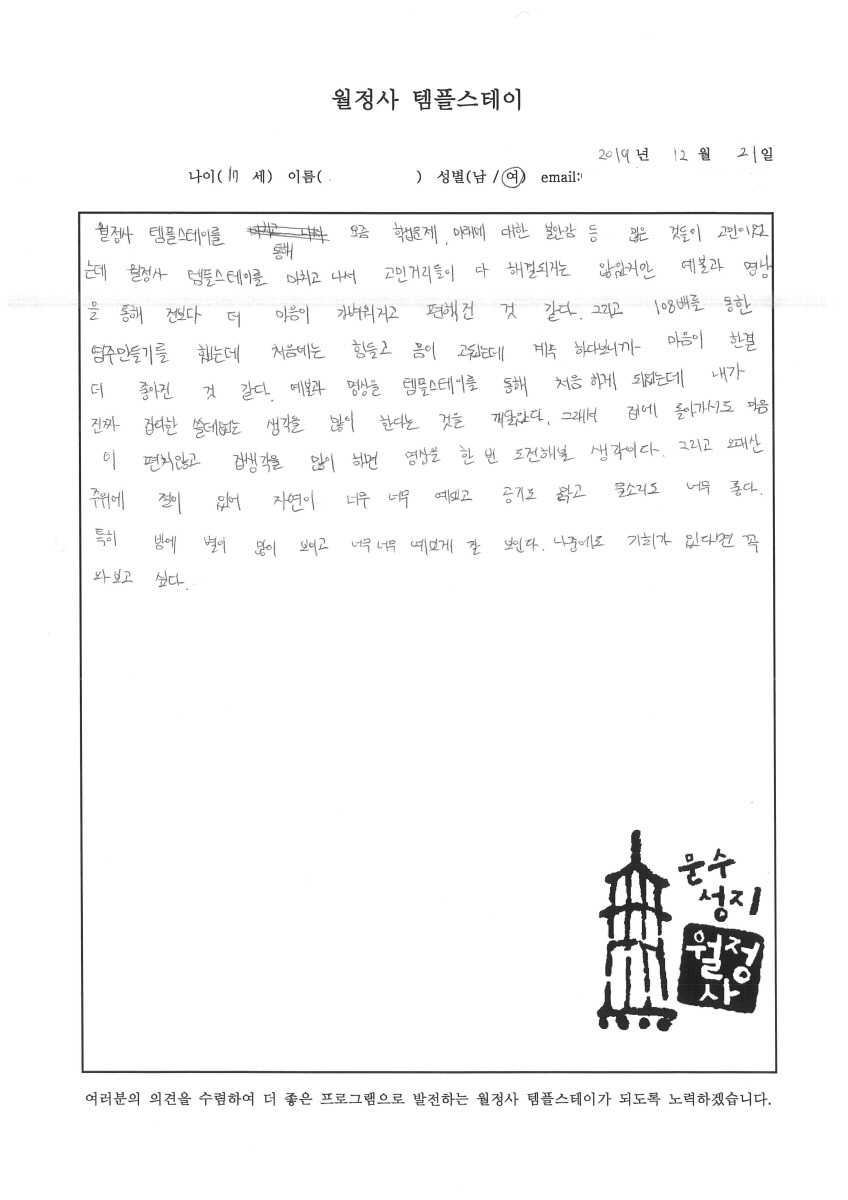 월정사 템플스테이
2019년 12월 21일
나이( 17 세) 이름( ) 성별(남 / 여) email:
월정사 템플스테이를 통해 요즘 학업문제, 미래에 대한 불안감 등 많은 것들이 고민이었
는데 월정사 템플스테이를 마치고 나서 고민거리들이 다 해결되거는 않았지만 예불과 명상
을 통해 전보다 더 마음이 가벼워지고 편해진 것 같다. 그리고 108배를 통한
염주만들기를 했는데 처음에는 힘들고 몸이 고됬는데 계속 하다보니까 마음이 한결
더 좋아진 것 같다. 예불과 명상을 템플스테이를 통해 처음 하게 되었는데 내가
진짜 잡다한 쓸데없는 생각을 많이 한다는 것을 깨달았다. 그래서 집에 돌아가서도 마음
이 편치않고 잡생각을 많이 하면 명상을 한 번 도전해볼 생각이다. 그리고 오대산
주위에 절이 있어 자연이 너무 너무 예쁘고 공기도 맑고 물소리도 너무 좋다.
특히 밤에 별이 많이 보이고 너무 너무 예쁘게 잘 보인다. 나중에도 기회가 있다면 꼭
와보고 싶다.
문수
성지
월정
사
여러분의 의견을 수렴하여 더 좋은 프로그램으로 발전하는 월정사 템플스테이가 되도록 노력하겠습니다.